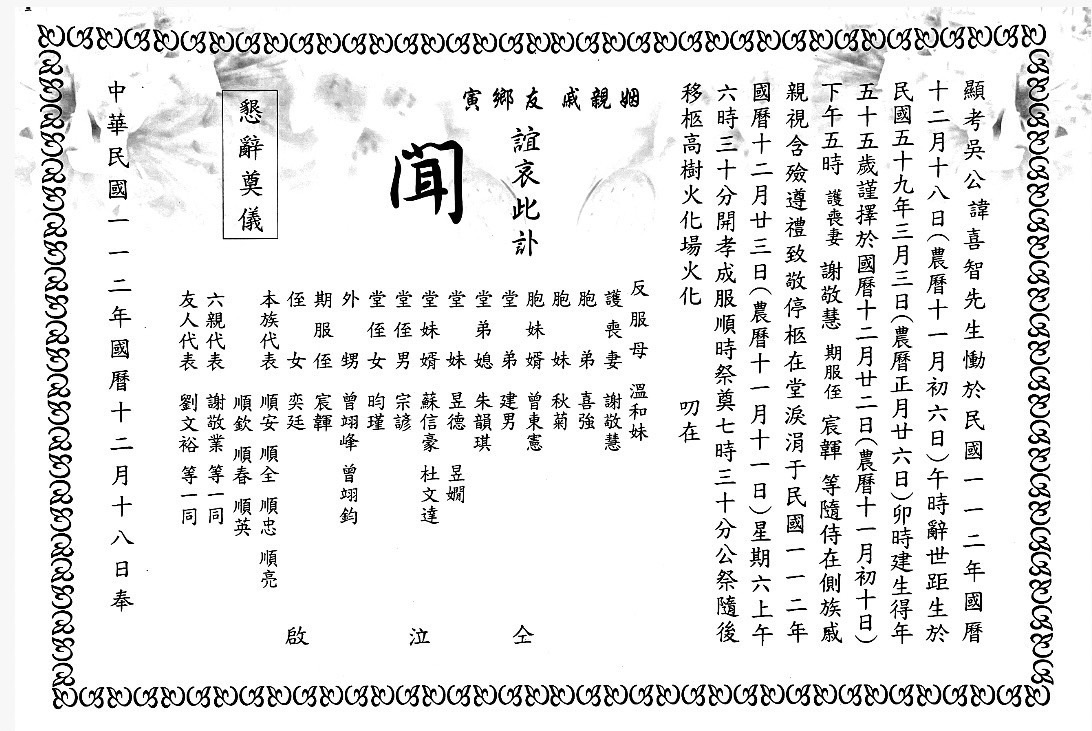 顯考吳公諱喜智先生慟於民國一一二年國曆
十二月十八日(農曆十一月初六日)午時辭世距生於
民國五十九年三月三日(農曆正月廿六日)卯時建生得年
五十五歲謹擇於國曆十二月廿二日(農曆十一月初十日)
下午五時 護喪妻 謝敬慧 期服侄 宸韗 等隨侍在側族戚
親視含殮遵禮致敬停柩在堂淚涓于民國一一二年
國曆十二月廿三日(農曆十一月十一日)星期六上午
六時三十分開孝成服順時祭奠七時三十分公祭隨後
移柩高樹火化場火化 叨在
姻親戚 友鄉寅
誼哀此訃
聞
反服母 溫和妹
護喪妻 謝敬慧
胞弟 喜強
胞妹 秋菊
胞妹婿 曾東憲
堂弟 建男
堂弟媳 朱韻琪
堂妹 昱德 昱嫺
堂妹婿 蘇信豪 杜文達
堂侄男 宗諺
堂侄女 昀瑾
外甥 曾翊峰 曾翊鈞
期服侄 宸韗
侄女 奕廷
本族代表 順安 順全 順忠 順亮
順欽 順春 順英
六親代表 謝敬業 等一同
友人代表 劉文裕 等一同
仝 泣 啟
懇辭奠儀
中華民國一一二年國曆十二月十八日奉